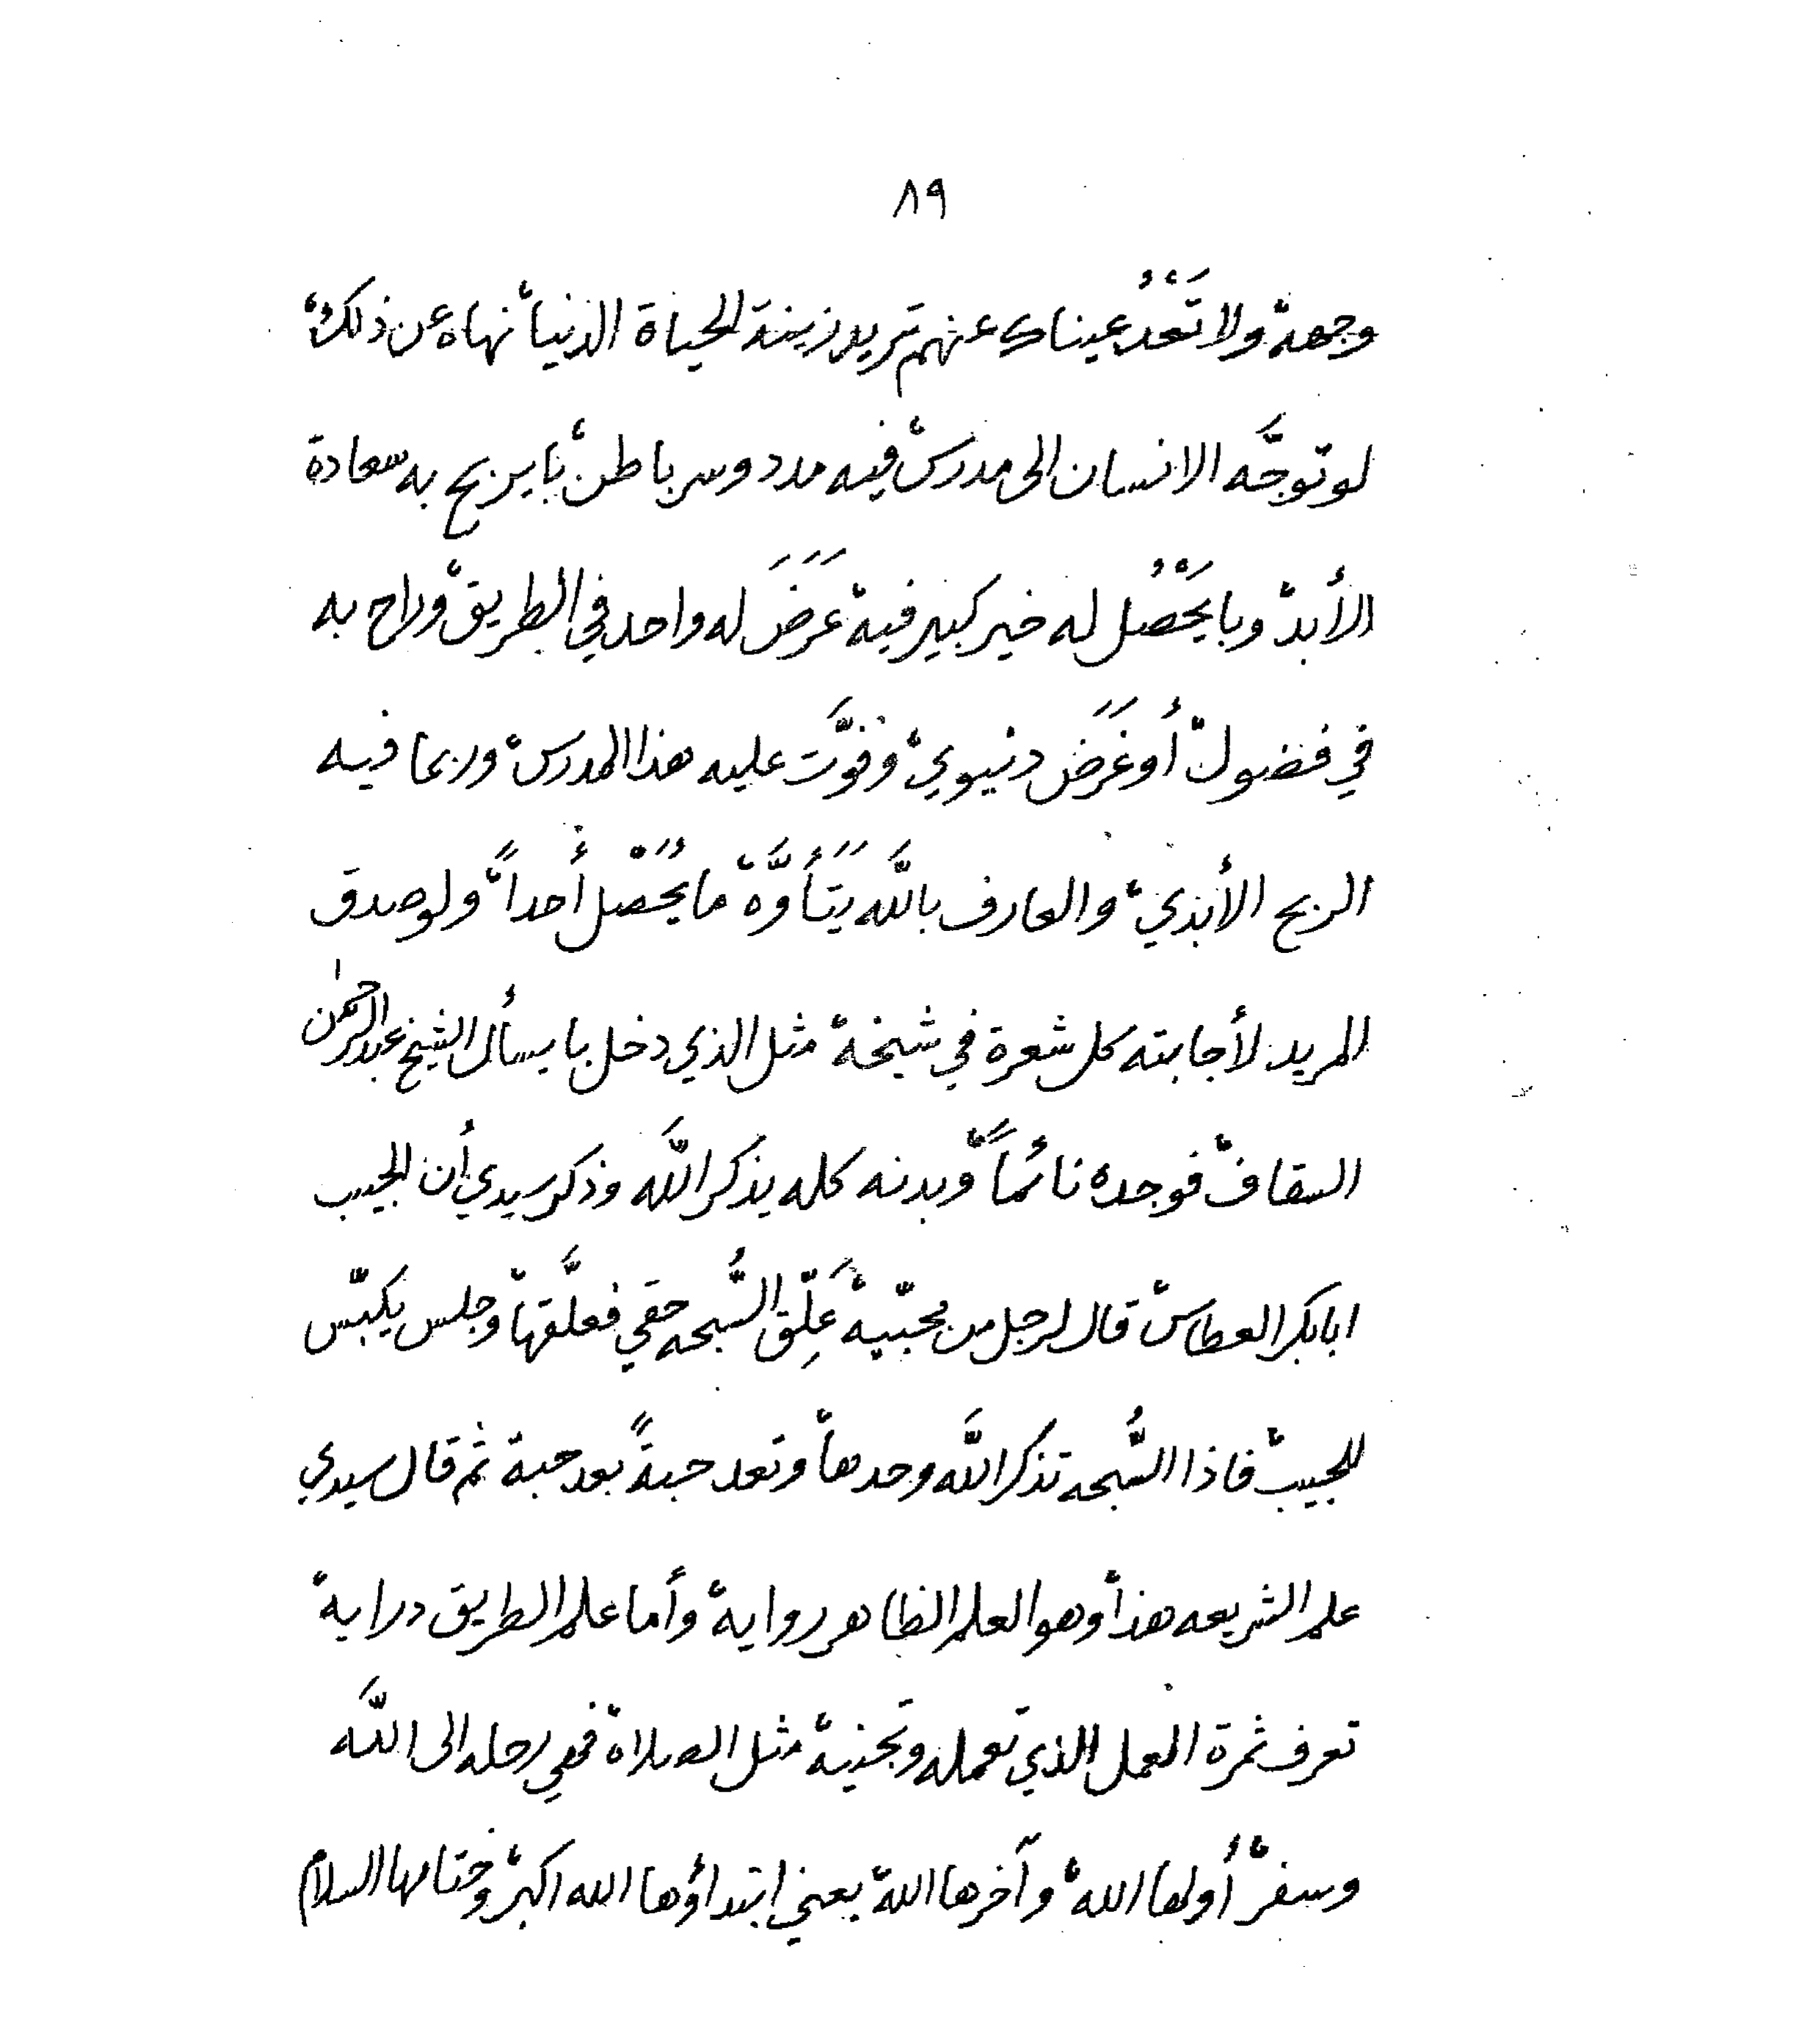 ٨٩
وجهه، ولا تَعْدُ عيناك عنهم تريد زينة الحياة الدنيا، نهاه عن ذلك،
لو توجَّه الانسان الى مدرس، فيه مدد وسر باطن، با يربح به سعادة
الأبد، وبا يَحْصُل له خير كبير فيه، عَرَضَ له واحد في الطريق، وراح به
في فضول، أو غَرَض دنيوي، وفوَّت عليه هذا المدرس، وربما فيه
الربح الأبدي، والعارف بالله يَتَأَوَّه، ما يُحَصْل أحداً، ولو صدق
المريد لأجابته كل شعرة في شيخه، مثل الذي دخل با يسأل الشيخ عبدالرحمٰن
السقاف، فوجده نائماً، وبدنه كله يذكر الله وذكر سيدي أن الحبيب
ابابكر العطاس، قال لرجل من محبّيه، عَلِّق السُّبحه حقي فعلَّقها، وجلس يكبّس
للحبيب، فاذا السُّبحه تذكر الله وحدها، وتعد حبةً بعد حبة ثم قال سيدي
علم الشريعه هذا، وهو العلم الظاهر رواية، وأما علم الطريق دراية،
تعرف ثمرة العمل الذي تعمله وتجنيه، مثل الصلاة، فهي رحله الى الله
وسفر، أولها الله، وآخرها الله، يعني ابتداؤها الله اكبر، وختامها السلام